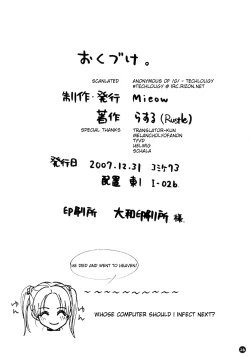 おくづけ。
SCANLATED ANONYMOUS OF /G/ - TECHLOLIGY
#TECHLOLIGY @ IRC.RIZON.NET
制作・発行 Mieow
著作 らする (Rustle)
SPECIAL THANKS TRANSLATOR-KUN
MELANCHOLYOFANON
TYVD
HELMIG
SCHALA
発行日 2007.12.31 コミケ73
配置 東1 I-02b.
印刷所 大和印刷所 様.
WE DIED AND WENT TO HEAVEN!
WHOSE COMPUTER SHOULD I INFECT NEXT?